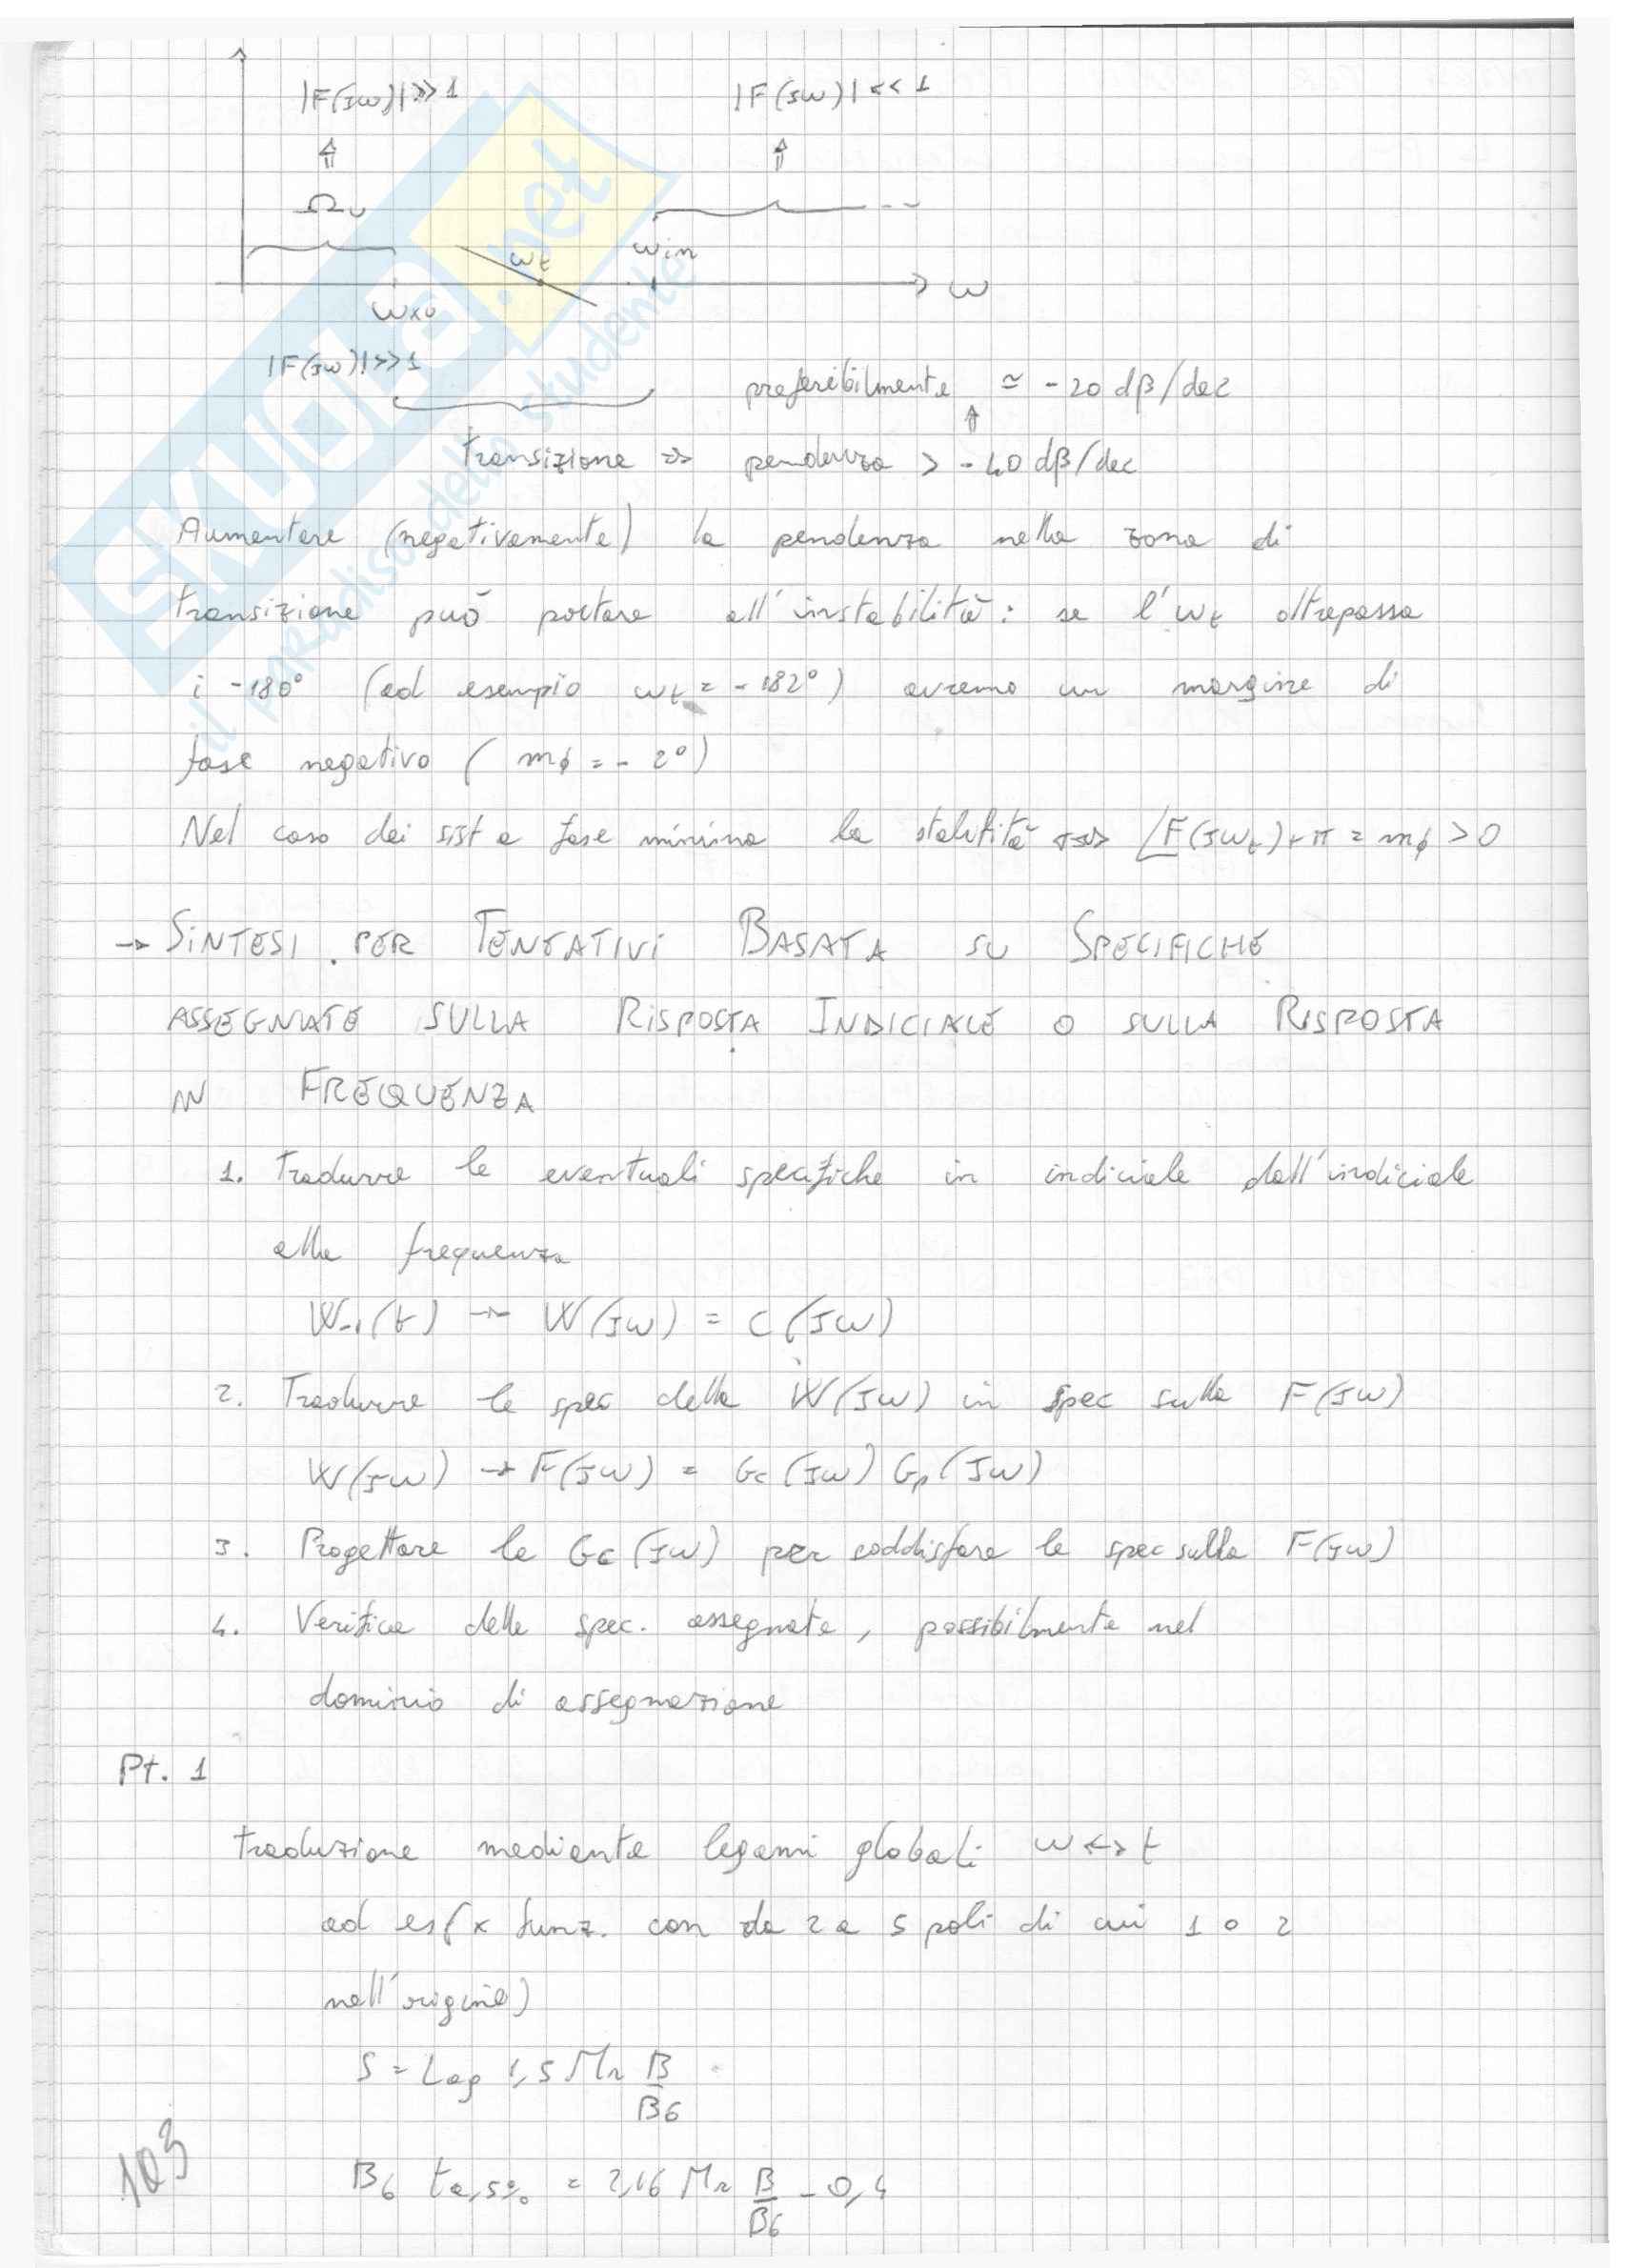 |F(jω)|>>1
|F(jω)|<<1
⇑ ⇑
Ωu
ωt ωin
ωxu ω
|F(jω)|>>1
preferibilmente ≃ -20 dB/dec
↑
transizione => pendenza > -40 dB/dec
Aumentare (negativamente) la pendenza nella zona di
transizione può portare all'instabilità: se l'ωt oltrepassa
i -180° (ad esempio ωt = -182°) avremo un margine di
fase negativo ( mϕ = - 2°)
Nel caso dei sist a fase minima la stabilità <=> ∠F(jωt)+π = mϕ > 0
→ SINTESI PER TENTATIVI BASATA SU SPECIFICHE
ASSEGNATE SULLA RISPOSTA INDICIALE O SULLA RISPOSTA
IN FREQUENZA
1. Tradurre le eventuali specifiche in indiciale dall'indiciale
alla frequenza
W-1(t) → W(jω) = C(jω)
2. Tradurre le spec della W(jω) in spec sulla F(jω)
W(jω) → F(jω) = Gc(jω) Gp(jω)
3. Progettare la Gc(jω) per soddisfare le spec sulla F(jω)
4. Verifica delle spec. assegnate, possibilmente nel
dominio di assegnazione
Pt. 1
traduzione mediante legami globali ω <-> t
ad es (x funz. con da 2 a 5 poli di cui 1 o 2
nell'origine)
S = Log 1,5 Mr B/B6
B6 ta,5% = 2,16 Mr B/B6 - 0,4
103
SKUOLA.net
il paradiso dello studente